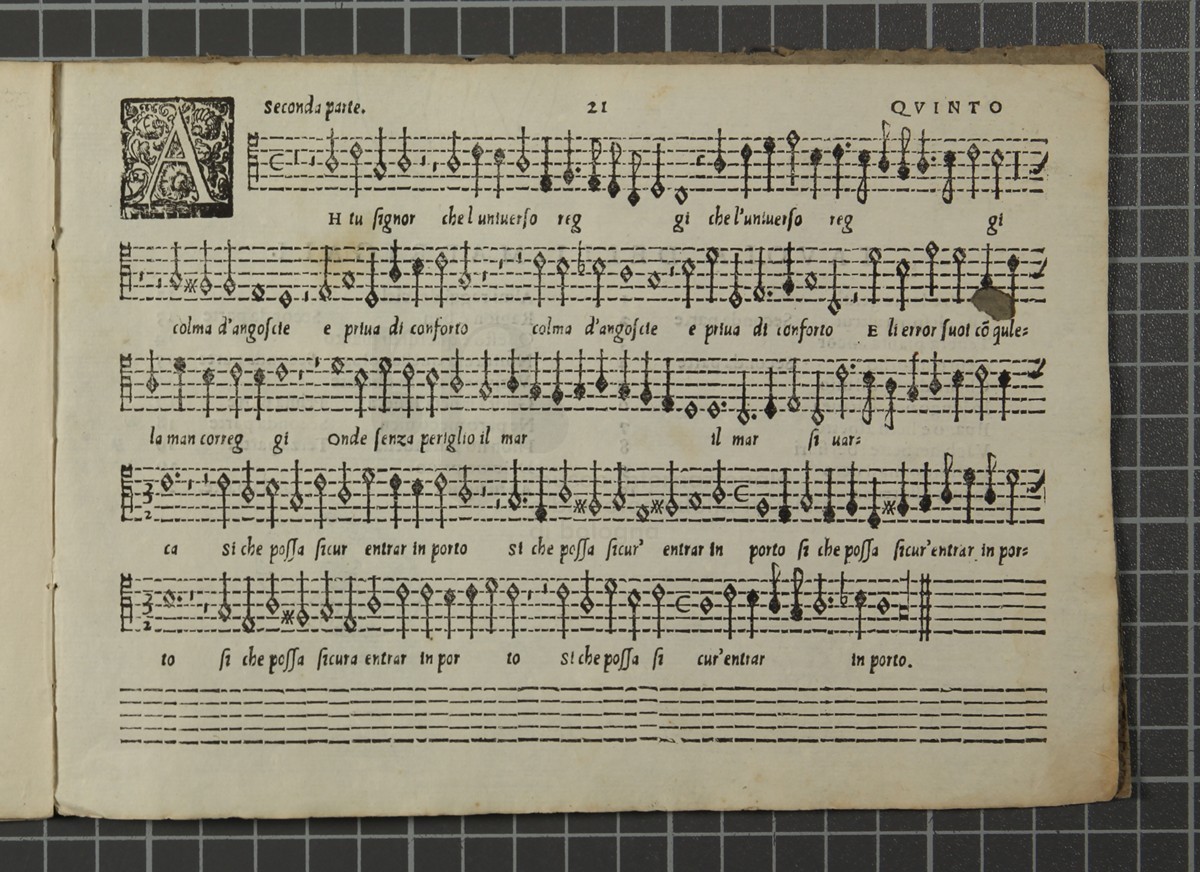 Seconda parte. 21 QVINTO
AH tu signor che l'uniuerso reg gi che l'uniuerso reg gi
colma d'angoscie e priua di conforto colma d'angoscie e priua di conforto E li error suoi cō qule=
la man correg gi Onde senza periglio il mar il mar si uar=
ca Si che possa sicur entrar in porto Si che possa sicur' entrar in porto si che possa sicur'entrar in por=
to si che possa sicura entrar in por to Si che possa si cur'entrar in porto.